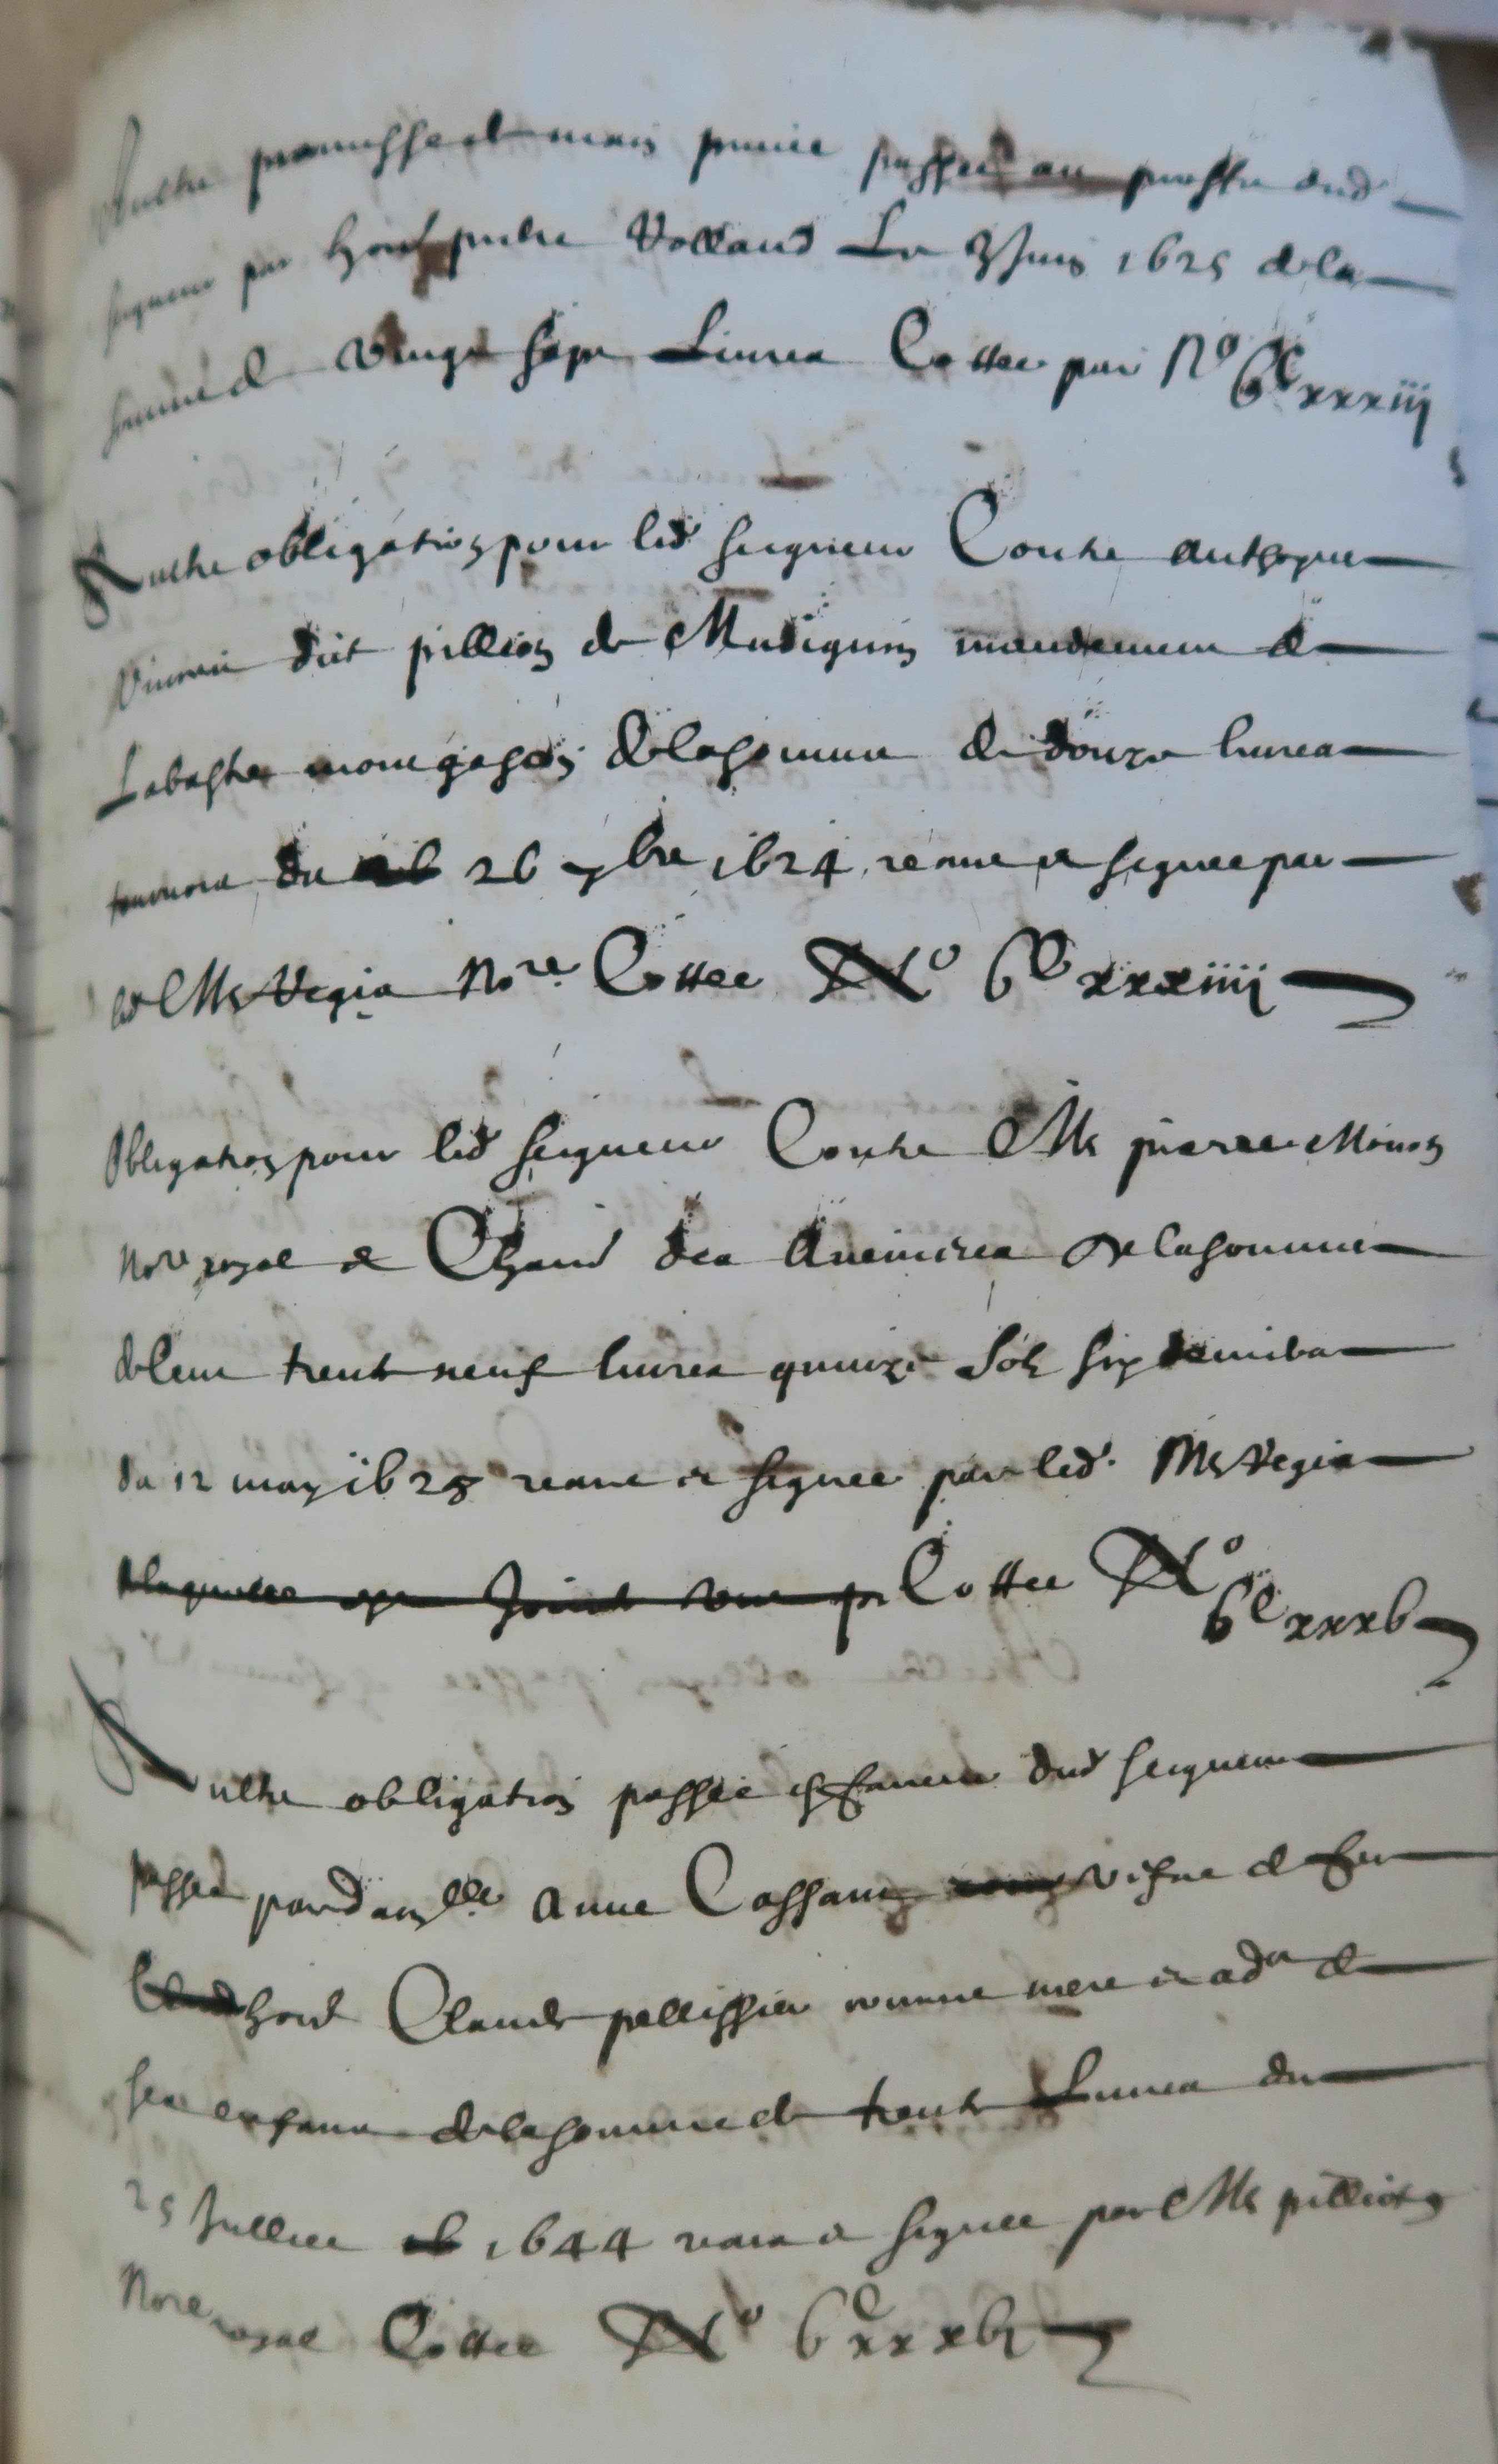 Aultre promesse de main privée passée au proffit dud
seigneur par hon^t pierre Volland Le Juin 1625 de la
somme de vingt sept Livres Cottee par N° 6^C xxxiij
Aultre obligation pour led seigneur Contre anthoyne
dict pillion de mandement de
Labastie montgascon de la somme de douze livres
tournois du 26 9bre 1624 receue et signee par
led M^e Vegia No^re Cottee N° 6^C xxxiiij
Obligation pour led seigneur Contre M^e pierre
No^re royal et Chan^t des Avenieres de la somme
de Cent trente neuf livres quinze solz six deniers
du 12 may 1625 receue et signee par led. M^e Vegia
a laquelle est Joinct une p^r Cottee N°
6^C xxxb
Aultre obligation passée en faveur dud seigneur
passee par dam^lle Anne Cassard vefve de feu
hon^t Claude pellissier comme mere et ad^r de
ses enfans de la somme de trente Livres du
25 Juillet 1644 receue et signee par M^e pillion
No^re royal Cottee N° 6^C xxxbj